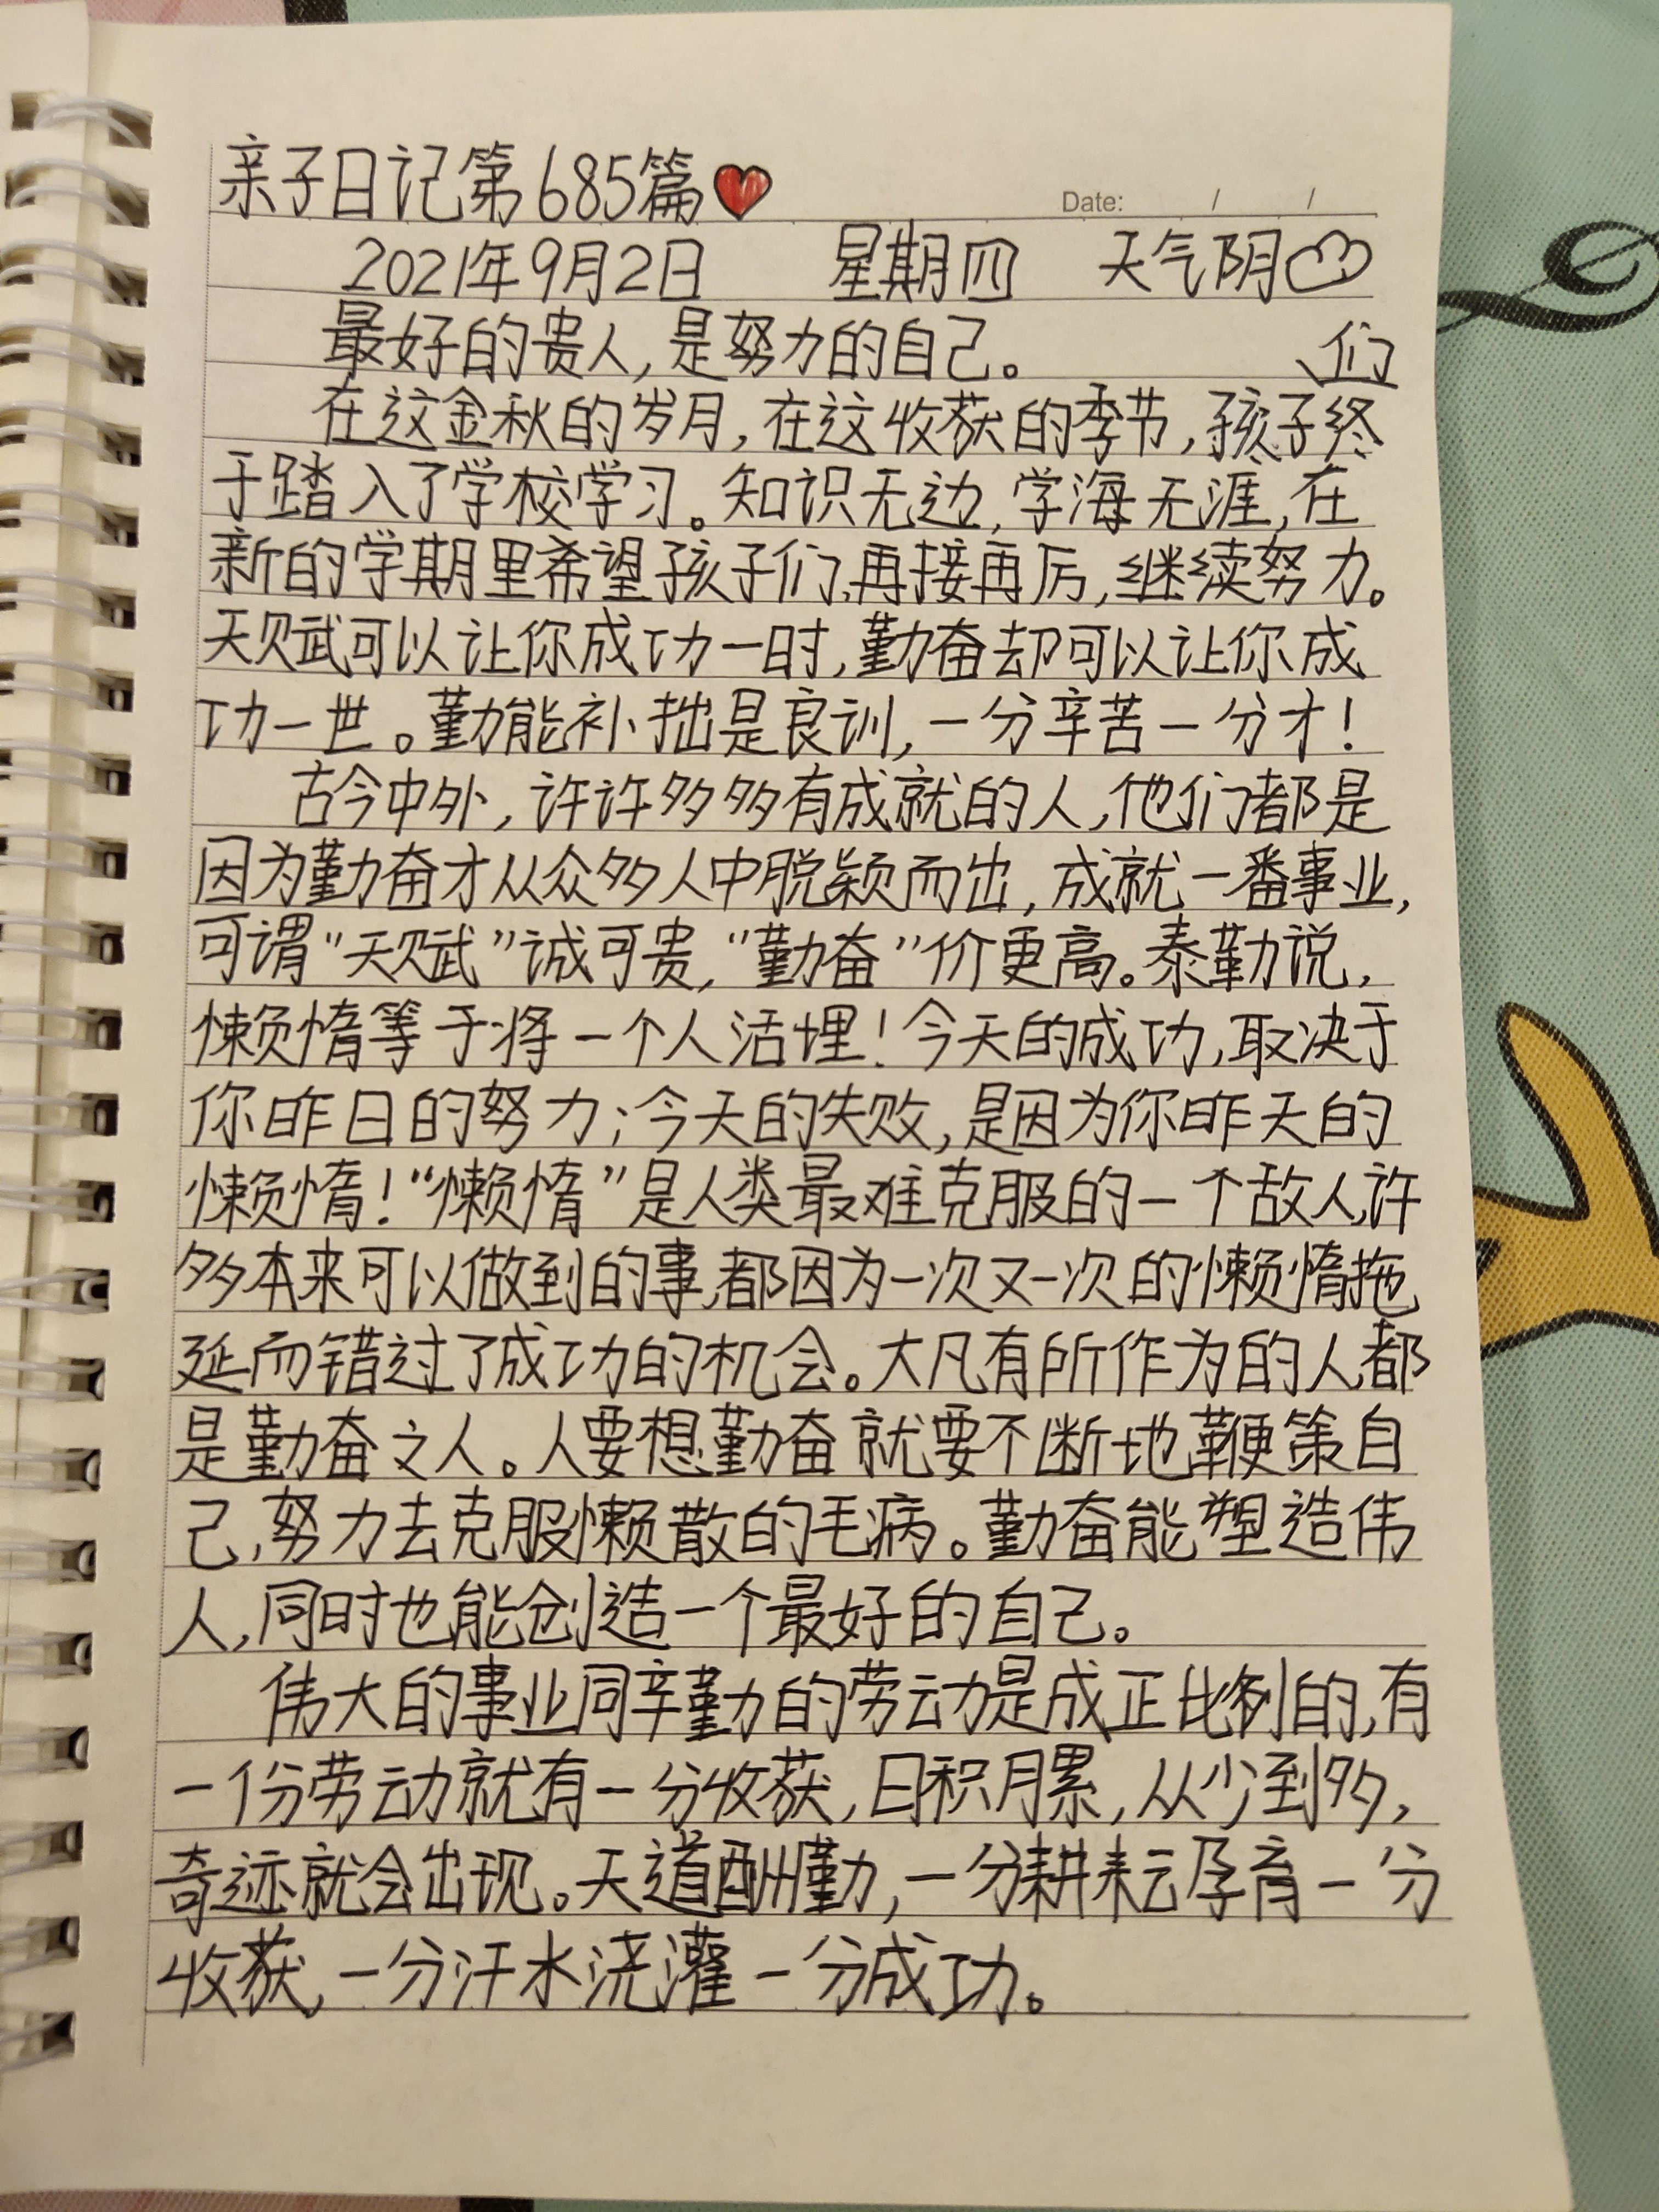 亲子日记第685篇
Date: / /
2021年9月2日 星期四 天气阴
最好的贵人,是努力的自己。
们
在这金秋的岁月,在这收获的季节,孩子终
于踏入了学校学习。知识无边,学海无涯,在
新的学期里希望孩子们,再接再厉,继续努力。
天赋可以让你成功一时,勤奋却可以让你成
功一世。勤能补拙是良训,一分辛苦一分才!
古今中外,许许多多有成就的人,他们都是
因为勤奋才从众多人中脱颖而出,成就一番事业,
可谓“天赋”诚可贵,“勤奋”价更高。泰勒说,
懒惰等于将一个人活埋!今天的成功,取决于
你昨日的努力;今天的失败,是因为你昨天的
懒惰!“懒惰”是人类最难克服的一个敌人,许
多本来可以做到的事,都因为一次又一次的懒惰拖
延而错过了成功的机会。大凡有所作为的人,都
是勤奋之人。人要想勤奋就要不断地鞭策自
己,努力去克服懒散的毛病。勤奋能塑造伟
人,同时也能创造一个最好的自己。
伟大的事业同辛勤的劳动是成正比例的,有
一份劳动就有一分收获,日积月累,从少到多,
奇迹就会出现。天道酬勤,一分耕耘孕育一分
收获,一分汗水浇灌一分成功。